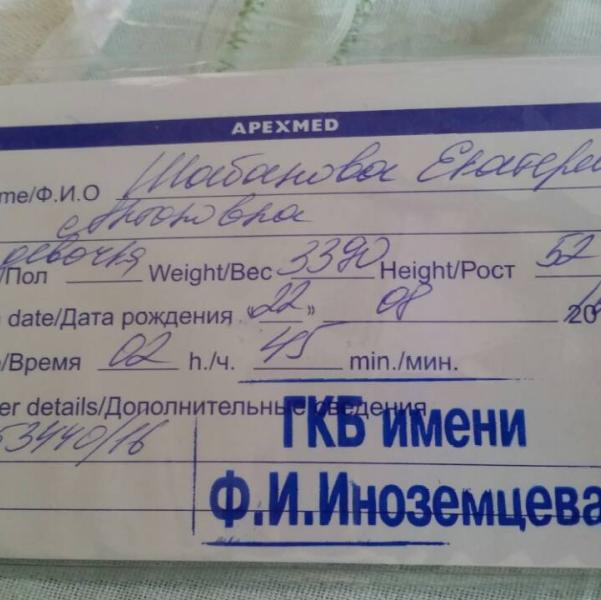 APEXMED
me/Ф.И.О Шабанова Екатери
Антоновна
/Пол девочка Weight/Вес 3390 Height/Рост 52
date/Дата рождения «22» 08 20
/Время 02 h./ч. 45 min./мин.
er details/Дополнительные сведения
53440/16
ГКБ имени
Ф.И.Иноземцева